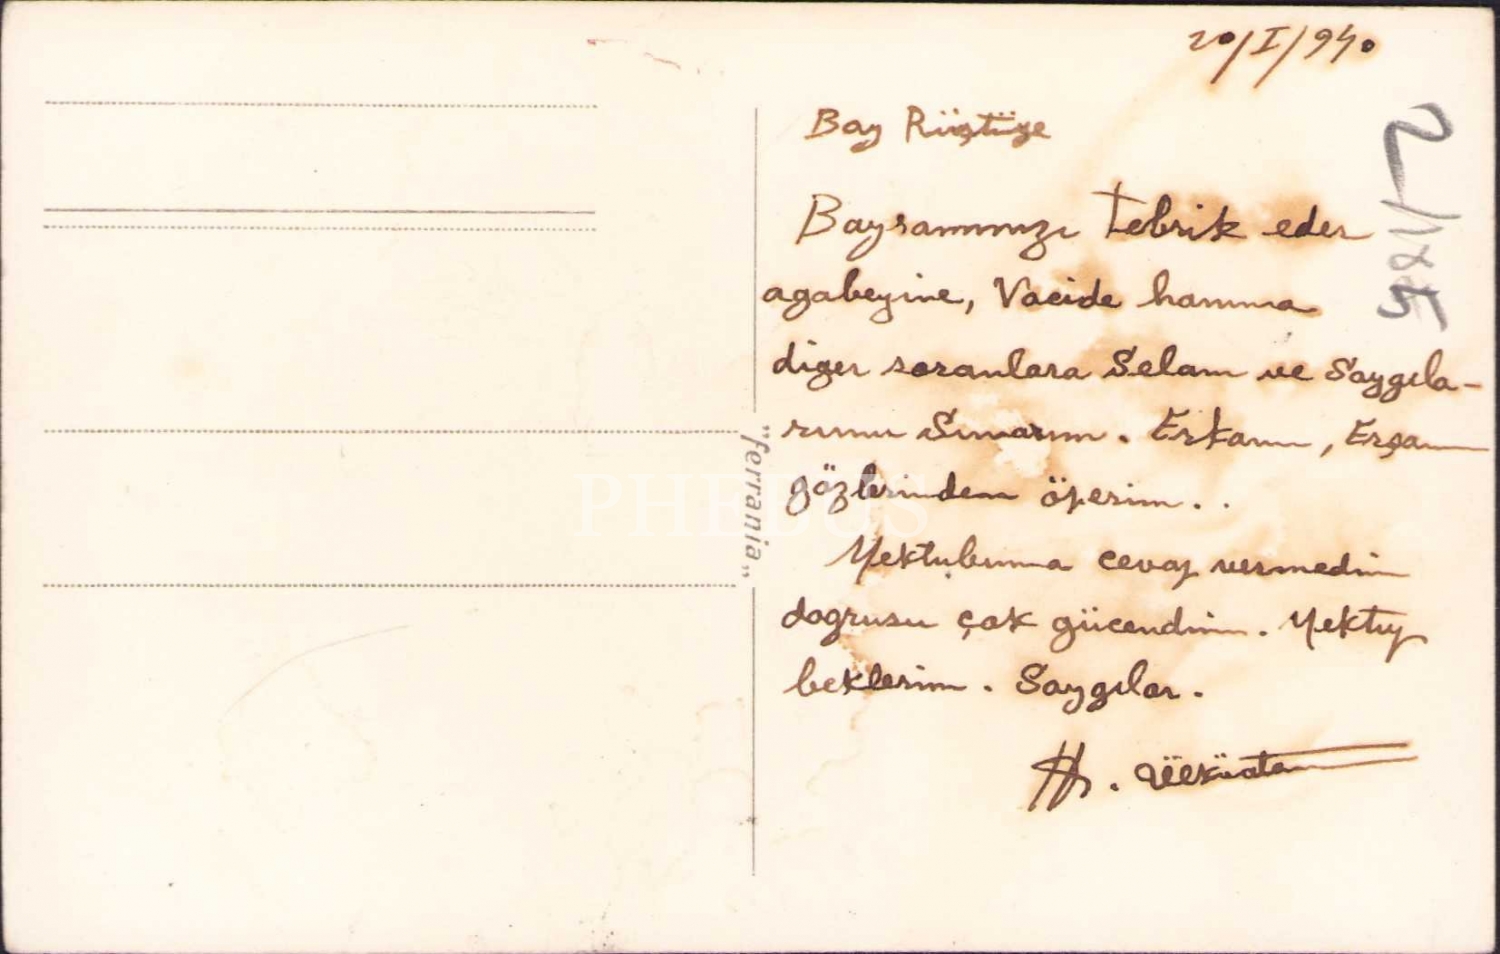 20/I/940
Bay Rüştüye
Bayramınızı tebrik eder
agabeyine, Vacide hanıma
diger soranlara Selam ve Saygıla-
rımı Sunarım. Erkanın,
gözlerinden öperim..
Mektubuma cevap vermedin
dogrusu çok gücendim. Mektup
beklerim. Saygılar.
H. Ülküatam
"ferrania"
PHEBUS